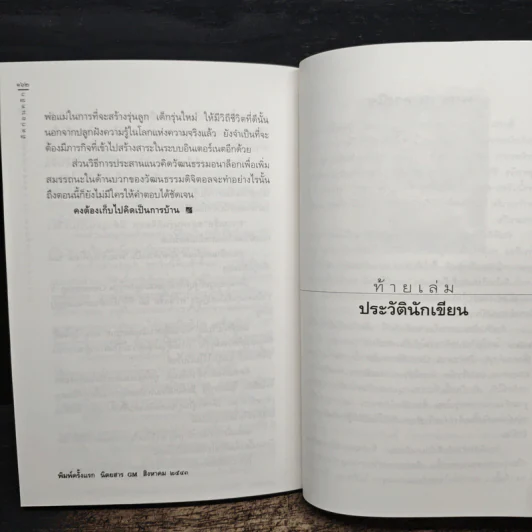 ๒๖๒
พ่อแม่ในการที่จะสร้างรุ่นลูก เด็กรุ่นใหม่ ให้มีวิถีชีวิตที่ดีนั้น
นอกจากปลูกฝังความรู้ในโลกแห่งความจริงแล้ว ยังจำเป็นที่จะ
ต้องมีภารกิจที่เข้าไปสร้างสาระในระบบอินเตอร์เนตอีกด้วย
ส่วนวิธีการประสานแนวคิดวัฒนธรรมอนาล็อกเพื่อเพิ่ม
สมรรถนะในด้านบวกของวัฒนธรรมดิจิตอลจะทำอย่างไรนั้น
ถึงตอนนี้ก็ยังไม่มีใครให้คำตอบได้ชัดเจน
คงต้องเก็บไปคิดเป็นการบ้าน
พิมพ์ครั้งแรก นิตยสาร GM สิงหาคม ๒๕๔๓
ท้ายเล่ม
ประวัตินักเขียน